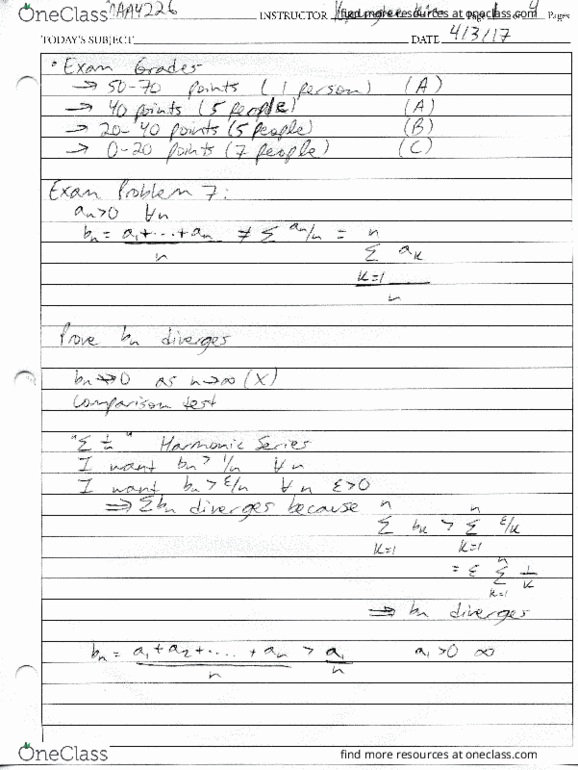 OneClass MAA4226 INSTRUCTOR find more resources at oneclass.com 4 Pages
TODAY'S SUBJECT DATE 4/3/17
• Exam Grades
→ 50-70 points (1 person) (A)
→ 40 points (5 people) (A)
→ 20-40 points (5 people) (B)
→ 0-20 points (7 people) (C)
Exam Problem 7:
aₙ>0 ∀n
bₙ = (a₁+...+aₙ)/n ≠ Σ aₙ/n = (Σ_{k=1}^{n} aₖ)/n
Prove bₙ diverges
bₙ↛0 as n→∞ (X)
Comparison test
"Σ 1/n" Harmonic Series
I want bₙ > 1/n ∀n
I want bₙ > ε/n ∀n ε>0
⇒ Σbₙ diverges because
Σ_{k=1}^{n} bₖ > Σ_{k=1}^{n} ε/k
= ε Σ_{k=1}^{n} 1/k
⇒ bₙ diverges
bₙ = (a₁+a₂+....+aₙ)/n > a₁/n a₁>0 ∞
OneClass find more resources at oneclass.com